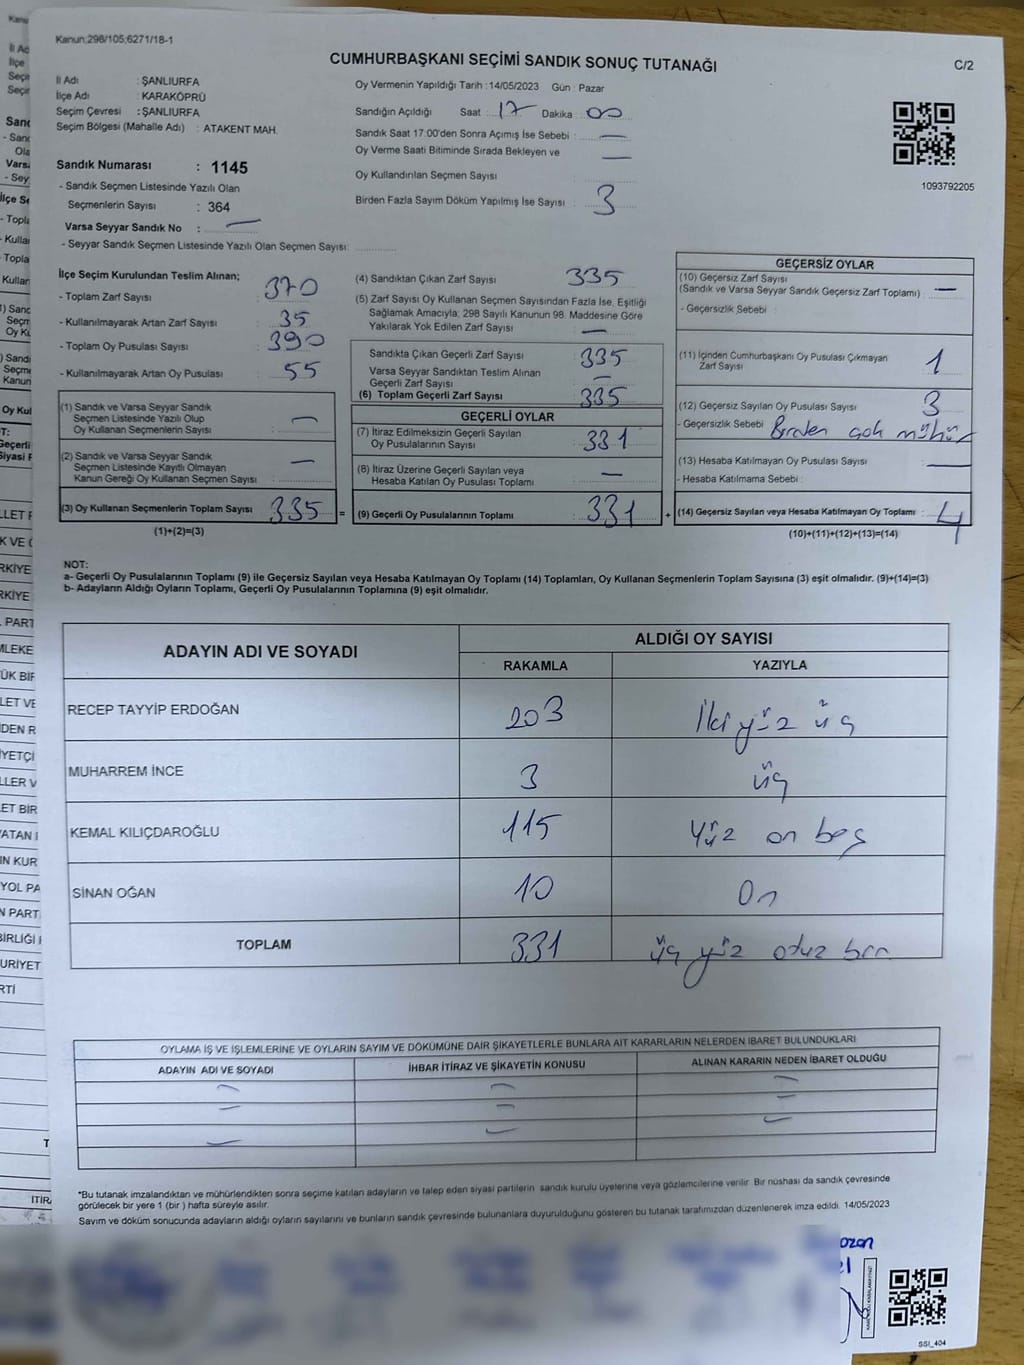 Kanun;298/105;6271/18-1
CUMHURBAŞKANI SEÇİMİ SANDIK SONUÇ TUTANAĞI
C/2
İl Adı : ŞANLIURFA
İlçe Adı : KARAKÖPRÜ
Seçim Çevresi : ŞANLIURFA
Seçim Bölgesi (Mahalle Adı) : ATAKENT MAH.
Sandık Numarası : 1145
- Sandık Seçmen Listesinde Yazılı Olan
Seçmenlerin Sayısı : 364
Varsa Seyyar Sandık No : —
- Seyyar Sandık Seçmen Listesinde Yazılı Olan Seçmen Sayısı:
Oy Vermenin Yapıldığı Tarih : 14/05/2023 Gün : Pazar
Sandığın Açıldığı Saat : 17 Dakika : 00
Sandık Saat 17.00'den Sonra Açımış İse Sebebi : —
Oy Verme Saati Bitiminde Sırada Bekleyen ve —
Oy Kullandırılan Seçmen Sayısı
Birden Fazla Sayım Döküm Yapılmış İse Sayısı : 3
1093792205
İlçe Seçim Kurulundan Teslim Alınan;
- Toplam Zarf Sayısı : 370
- Kullanılmayarak Artan Zarf Sayısı : 35
- Toplam Oy Pusulası Sayısı : 390
- Kullanılmayarak Artan Oy Pusulası : 55
(1) Sandık ve Varsa Seyyar Sandık
Seçmen Listesinde Yazılı Olup
Oy Kullanan Seçmenlerin Sayısı : —
(2) Sandık ve Varsa Seyyar Sandık
Seçmen Listesinde Kayıtlı Olmayan
Kanun Gereği Oy Kullanan Seçmen Sayısı : —
(3) Oy Kullanan Seçmenlerin Toplam Sayısı : 335 =
(1)+(2)=(3)
(4) Sandıktan Çıkan Zarf Sayısı : 335
(5) Zarf Sayısı Oy Kullanan Seçmen Sayısından Fazla İse, Eşitliği
Sağlamak Amacıyla; 298 Sayılı Kanunun 98. Maddesine Göre
Yakılarak Yok Edilen Zarf Sayısı : —
Sandıkta Çıkan Geçerli Zarf Sayısı : 335
Varsa Seyyar Sandıktan Teslim Alınan
Geçerli Zarf Sayısı : —
(6) Toplam Geçerli Zarf Sayısı : 335
GEÇERLİ OYLAR
(7) İtiraz Edilmeksizin Geçerli Sayılan
Oy Pusulalarının Sayısı : 331
(8) İtiraz Üzerine Geçerli Sayılan veya
Hesaba Katılan Oy Pusulası Toplamı : —
(9) Geçerli Oy Pusulalarının Toplamı : 331 +
GEÇERSİZ OYLAR
(10) Geçersiz Zarf Sayısı
(Sandık ve Varsa Seyyar Sandık Geçersiz Zarf Toplamı) : —
- Geçersizlik Sebebi :
(11) İçinden Cumhurbaşkanı Oy Pusulası Çıkmayan
Zarf Sayısı : 1
(12) Geçersiz Sayılan Oy Pusulası Sayısı : 3
- Geçersizlik Sebebi : Birden çok mühür
(13) Hesaba Katılmayan Oy Pusulası Sayısı : —
- Hesaba Katılmama Sebebi :
(14) Geçersiz Sayılan veya Hesaba Katılmayan Oy Toplamı : 4
(10)+(11)+(12)+(13)=(14)
NOT:
a- Geçerli Oy Pusulalarının Toplamı (9) ile Geçersiz Sayılan veya Hesaba Katılmayan Oy Toplamı (14) Toplamları, Oy Kullanan Seçmenlerin Toplam Sayısına (3) eşit olmalıdır. (9)+(14)=(3)
b- Adayların Aldığı Oyların Toplamı, Geçerli Oy Pusulalarının Toplamına (9) eşit olmalıdır.
ADAYIN ADI VE SOYADI
ALDIĞI OY SAYISI
RAKAMLA YAZIYLA
RECEP TAYYİP ERDOĞAN 203 İki yüz üç
MUHARREM İNCE 3 üç
KEMAL KILIÇDAROĞLU 115 Yüz on beş
SİNAN OĞAN 10 On
TOPLAM 331 üç yüz otuz bir
OYLAMA İŞ VE İŞLEMLERİNE VE OYLARIN SAYIM VE DÖKÜMÜNE DAİR ŞİKAYETLERLE BUNLARA AİT KARARLARIN NELERDEN İBARET BULUNDUKLARI
ADAYIN ADI VE SOYADI İHBAR İTİRAZ VE ŞİKAYETİN KONUSU ALINAN KARARIN NEDEN İBARET OLDUĞU
*Bu tutanak imzalandıktan ve mühürlendikten sonra seçime katılan adayların ve talep eden siyasi partilerin sandık kurulu üyelerine veya gözlemcilerine verilir. Bir nüshası da sandık çevresinde
görülecek bir yere 1 (bir ) hafta süreyle asılır.
Sayım ve döküm sonucunda adayların aldığı oyların sayılarını ve bunların sandık çevresinde bulunanlara duyurulduğunu gösteren bu tutanak tarafımızdan düzenlenerek imza edildi. 14/05/2023
SSİ_404